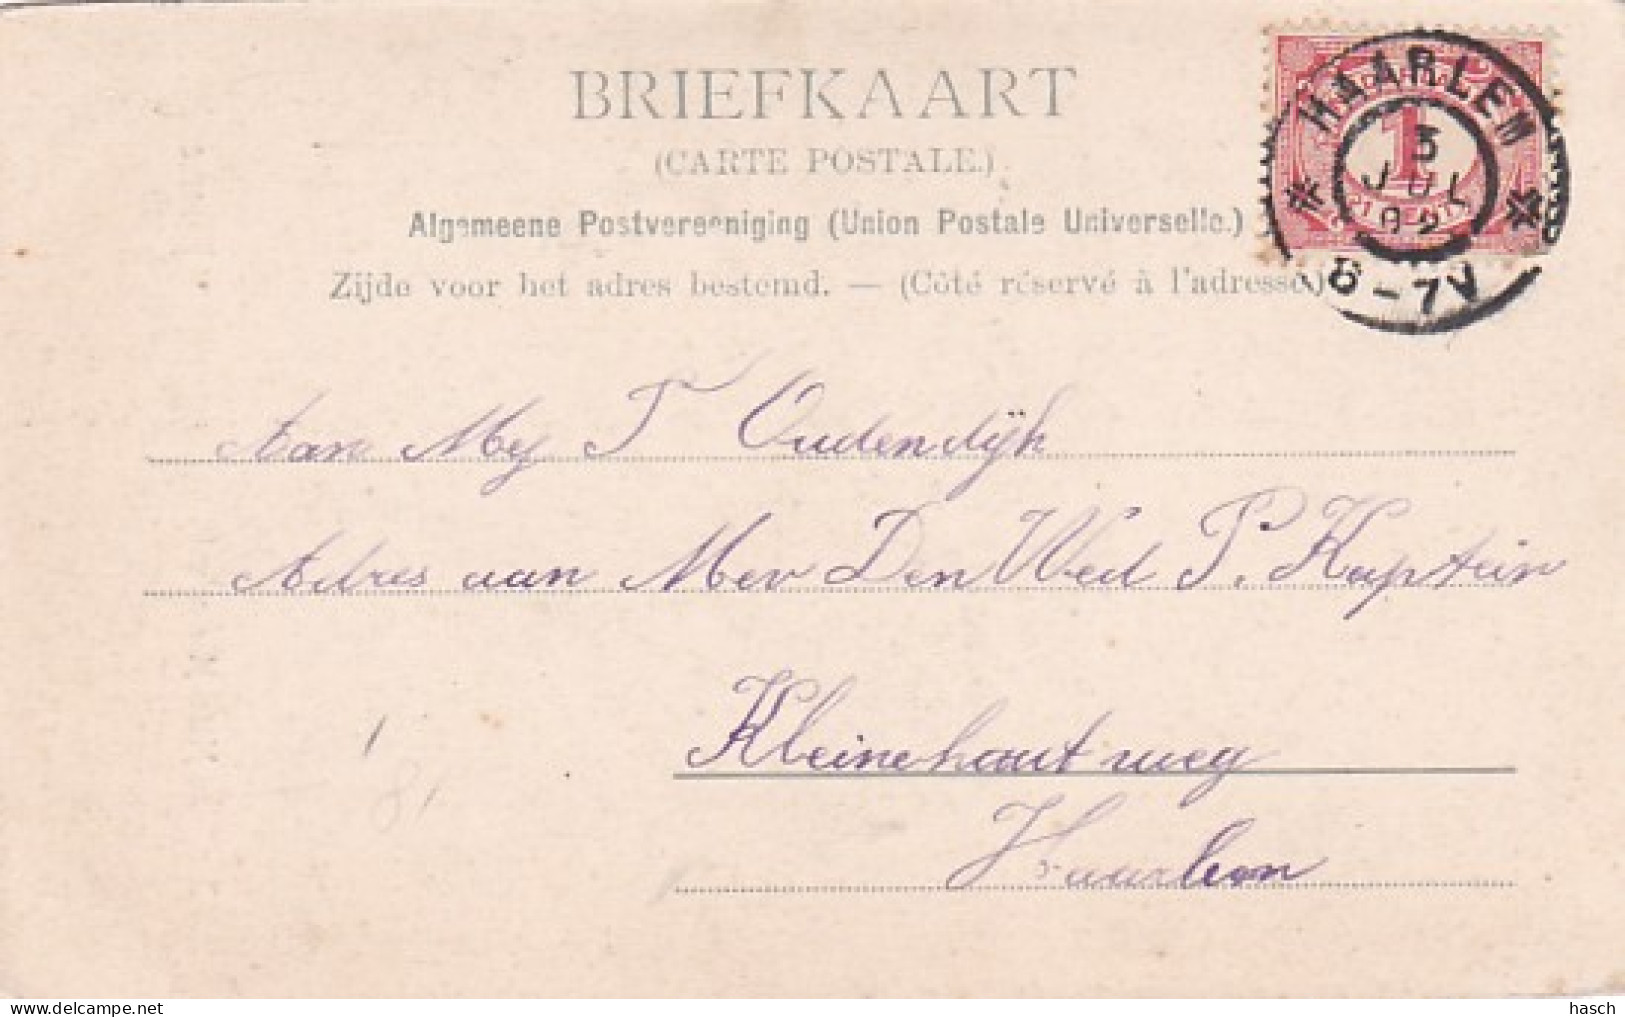 BRIEFKAART
(CARTE POSTALE.)
Algemeene Postvereeniging (Union Postale Universelle.)
Zijde voor het adres bestemd. — (Côté réservé à l'adresse.)
HAARLEM
3
JUL
6-7V
1
Aan Mej T Oudendijk
Adres aan Mev Den Wed P. Kaptein
Kleinehoutweg
Haarlem
delcampe.net
hasch